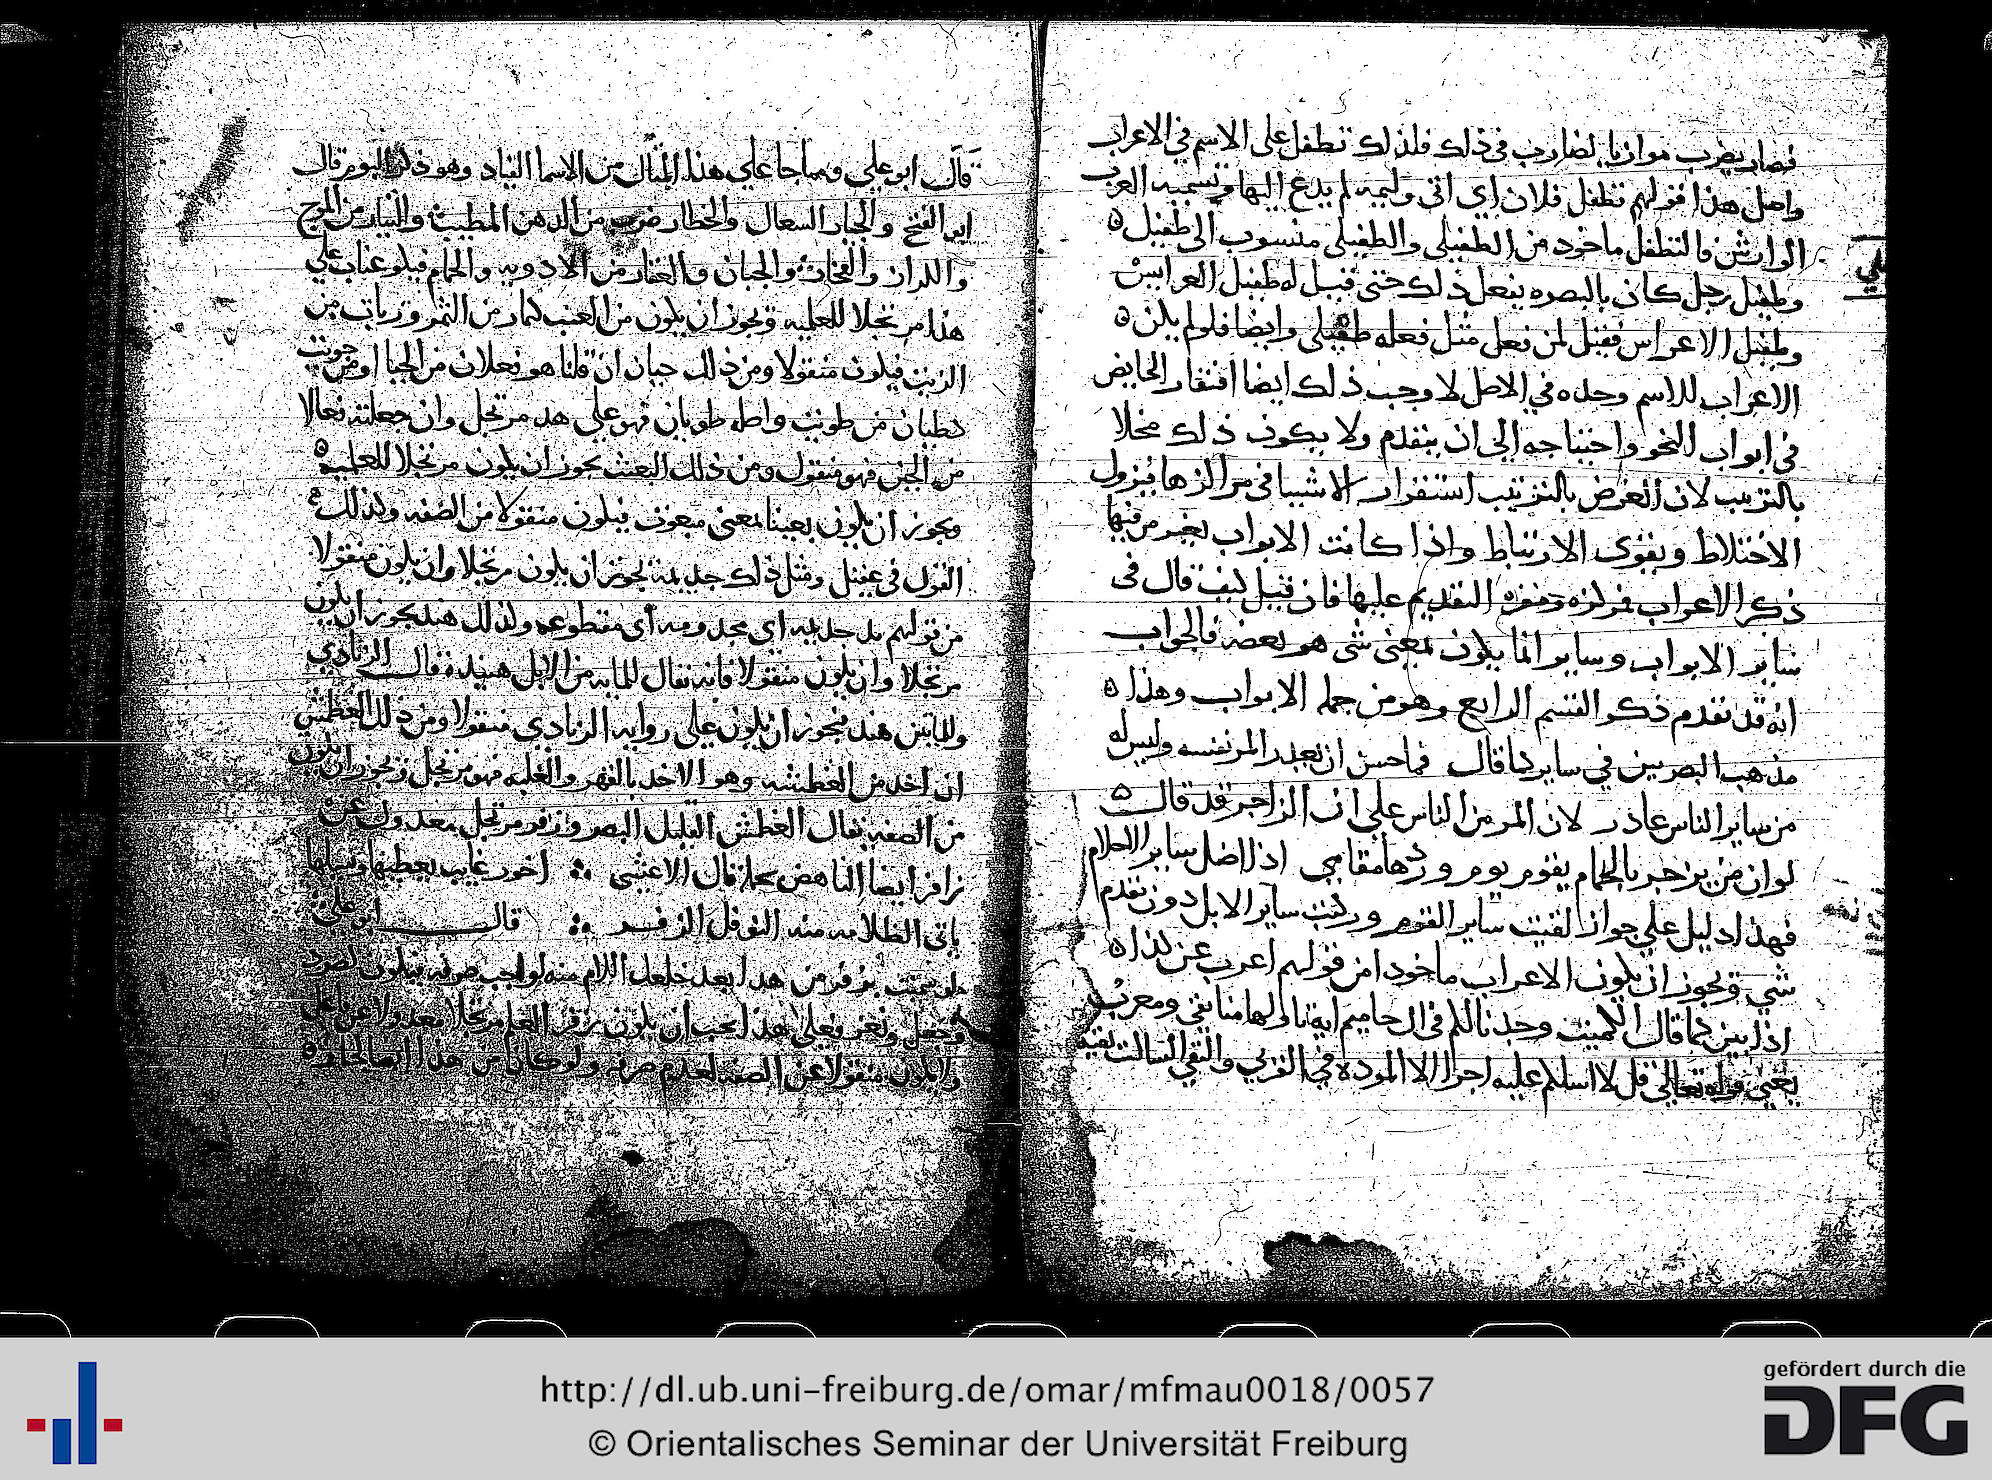 فصار يضرب موازيا لضارب في ذلك فلذلك تطفل على الاسم في الاعراب
واصل هذا قولهم تطفل فلان اي اتى وليمه لم يدع اليها وتسميه العرب
الوارش فالتطفل ماخوذ من الطفيلي والطفيلي منسوب الى طفيل ه
وطفيل رجل كان بالبصره يفعل ذلك حتى قيل له طفيل العرايس
وطفيل الاعراس فقيل لمن فعل مثل فعله طفيلى وايضا فلو لم يكن ه
الاعراب للاسم وحده في الاصل لاوجب ذلك ايضا افتقار الخايض
في ابواب النحو واحتياجه الى ان يتقدم ولا يكون ذلك مخلا
بالترتيب لان الغرض بالترتيب استقرار الاشيا في مراكزها فيزول
الاختلاط ويقوى الارتباط واذا كانت الابواب بغير مرتبها
ذكر الاعراب فمركزه ومقره التقديم عليها فان قيل كيف قال في
ساير الابواب وساير انما يكون بمعنى شى هو بعضه فالجواب
انه قد تقدم ذكر القسم الرابع وهو من جمله الابواب وهذا ه
مذهب البصريين في ساير كما قال فما حسن ان يعذر المر نفسه وليس له
من ساير الناس عاذر لان المر من الناس على ان الراجز قد قال ه
لو ان من يزجر بالحمام يقوم يوم وردها مقامي اذا اضل ساير الاحلام
فهذا دليل على جواز لقيت ساير القوم وركبت ساير الابل دون تقدم
شي ويجوز ان يكون الاعراب ماخوذا من قولهم اعرب عن كذا ه
اذا بين كما قال الكميت وجدنا لكم في ال حاميم ايه تاولها منا تقي ومعرب
يعني قوله تعالى قل لا اسلكم عليه اجرا الا الموده في القربي والتقي الساكت تقيه
قال ابو علي ومما جا علي هذا المثال من الاسما الفياد وهو ذكر البوم قال
ابو الفتح والجيار السعال والخطار ضرب من الدهن المطيب والتيار من الموج
والكرار والفخار والجبان والعقار من الادويه والحمام فيكون عتاب علي
هذا مرتجلا للعلميه ويجوز ان يكون من العتب كتمار من التمر وزيات من
الزيت فيكون منقولا ومن ذلك حيان ان قلنا هو فعلان من الحيا او من حويت
كطيان من طويت واصله طويان فهو علي هذا مرتجل وان جعلته فعالا
من الحين فهو منقول ومن ذلك البعيث يجوز ان يكون مرتجلا للعلميه ه
ويجوز ان يكون بعيثا بمعنى مبعوث فيكون منقولا من الصفه وكذلك
القول في عقيل ومثل ذلك جذيمة يجوز ان يكون مرتجلا وان يكون منقولا
من قولهم يد جذيمه اي مجذومه اي مقطوعه وكذلك هند يجوز ان يكون
مرتجلا وان يكون منقولا فانه يقال للمايه من الابل هنيده قال الزيادي
وللمايتين هند فيجوز ان يكون علي روايه الزيادي منقولا ومن ذلك الغطمش
ان اخذ من الغطمشه وهو الاخذ بالقهر والغلبه فهو مرتجل ويجوز ان يكون
من الصفه يقال الغطمش القليل البصر وزفر مرتجل معدول عن
زافر ايضا الناهض بحمله قال الاعشي اخو رغايب يعطيها ويسلها
يابى الظلامه منه النوفل الزفر قال ابو علي
ولو سميت بزفر من هذا بعد خلعك اللام منه لواجب صرفه فيكون كصرد
وجعل ونغر فعلي هذا يجب ان يكون زفر العلم مرتجلا معدولا عن
ولا يكون منقولا عن الصفه لعدم صرفه ولو كان من هذا ايضا لجاز ه
http://dl.ub.uni-freiburg.de/omar/mfmau0018/0057
© Orientalisches Seminar der Universität Freiburg
gefördert durch die
DFG